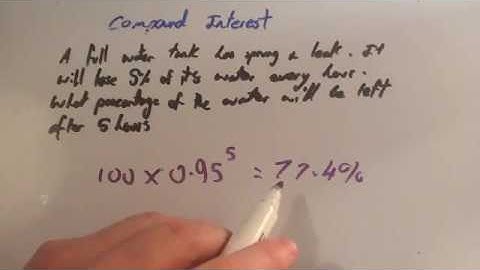 Compound Interest
A full water tank has sprung a leak. It
will lose 5% of its water every hour.
What percentage of the water will be left
after 5 hours
100 x 0.95⁵ = 77.4%